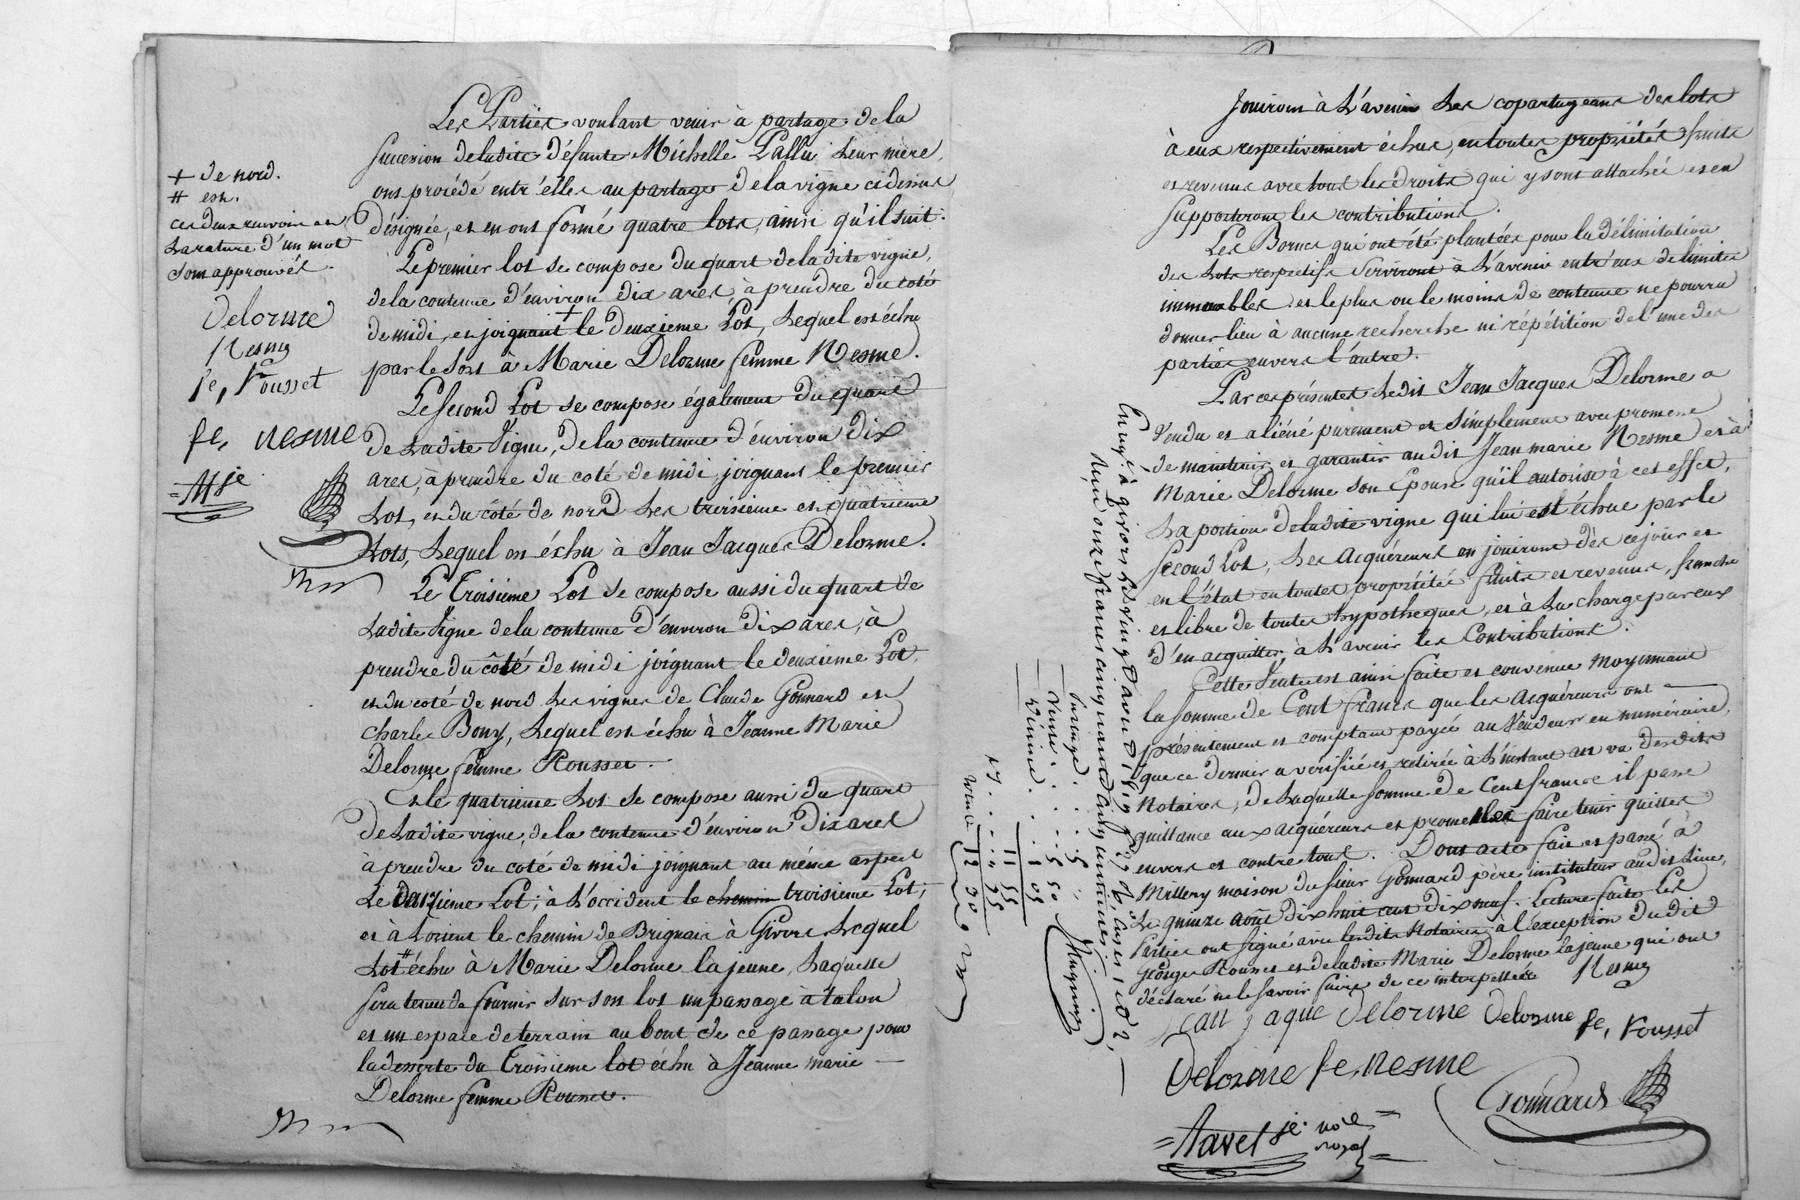 Les Parties voulant venir à partage de la
succession de ladite défunte Michelle Pallu leur mère,
ont procédé entr'elles au partage de la vigne ci dessus
désignée, et en ont formé quatre lots, ainsi qu'il suit.
Le premier lot se compose du quart de ladite vigne,
de la contenue d'environ dix ares, à prendre du coté
de midi, et joignant + le deuxieme Lot, Lequel est échu
par le Sort à Marie Delorme femme Nesme.
Le Second Lot se compose également du quart
de Ladite Vigne, de la contenue d'environ dix
ares, à prendre du coté de midi joignant le premier
Lot, et du côté de nord Les troisieme et quatrieme
Lots, Lequel est échu à Jean Jacques Delorme.
Le Troisieme Lot se compose aussi du quart de
Ladite Vigne de la contenue d'environ dix ares, à
prendre du côté de midi joignant le deuxieme Lot,
et du coté de nord Les vignes de Claude Gonnard et
Charles Bony, Lequel est échu à Jeanne Marie
Delorme femme Rousset.
Et le quatrieme Lot se compose aussi du quart
de Ladite vigne, de la contenue d'environ dix ares
à prendre du coté de midi joignant au même aspect
Le deuxieme Lot, à L'occident le chemin troisieme Lot,
et à Lorient le chemin de Brignais à Givors Lequel
Lot # échu à Marie Delorme la jeune, Laquelle
sera tenue de fournir sur son lot un passage à talon
et un espace de terrain au bout de ce passage pour
la desserte du Troisieme lot échu à Jeanne marie
Delorme femme Rousset.
+ de nord.
# est.
ces deux renvois et
La rature d'un mot
sont approuvés.
Delorme
Nesme
fe, Rousset
fe, nesme
Jouiront à L'avenir Les copartageans des lots
à eux respectivement échus, en toutes propriétés fruits
et revenus avec tous les droits qui y sont attachés et en
supporteront les contributions.
Les Bornes qui ont été plantées pour la délimitation
des Lots respectifs Serviront à L'avenir entr'eux de limites
immuables et le plus ou le moins de contenue ne pourra
donner lieu à aucune recherche ni répétition de l'une des
parties envers l'autre.
Par ces présentes Ledit Jean Jacques Delorme a
Vendu et aliéné purement et simplement avec promesse
de maintenir et garantir audit Jean marie Nesme et à
Marie Delorme son Epouse qu'il autorise à cet effet,
La portion de ladite vigne qui lui est échue par le
Second Lot, Les acquéreurs en jouiront dès ce jour et
en l'état en toutes propriétés fruits et revenus, franche
et libre de toutes hypotheques, et à La charge par eux
d'en acquitter à L'avenir les Contributions.
Cette Vente est ainsi faite et convenue moyennant
la somme de Cent francs que les acquéreurs ont
présentement et comptant payée au Vendeur en numéraire,
que ce dernier a vérifiée et retirée à L'instant au vu desdits
Notaires, de Laquelle somme de Cent francs il passe
quittance aux acquéreurs et promet les faire tenir quittes
envers et contre tous. Dont acte fait et passé à
Millery maison du sieur Gonnard père instituteur audit Lieu,
Le quinze août dix huit cent dix neuf. Lecture faite Les
Parties ont signé avec lesdits Notaires à l'exception dudit
George Rousset et de ladite Marie Delorme la jeune qui ont
déclaré ne le savoir faire de ce interpellés
Nesme
Jean Jaque Delorme Delorme fe, rousset
Delorme fe, nesme
Gonnard
Tavel je. nore
royal
Enreg.é à givors Le vingt aout 1819
Reçu onze francs cinquante cinq centimes
Partage . . . . 5 "
Vente . . . . 5 50
Dixieme . . . 1 05
11 55